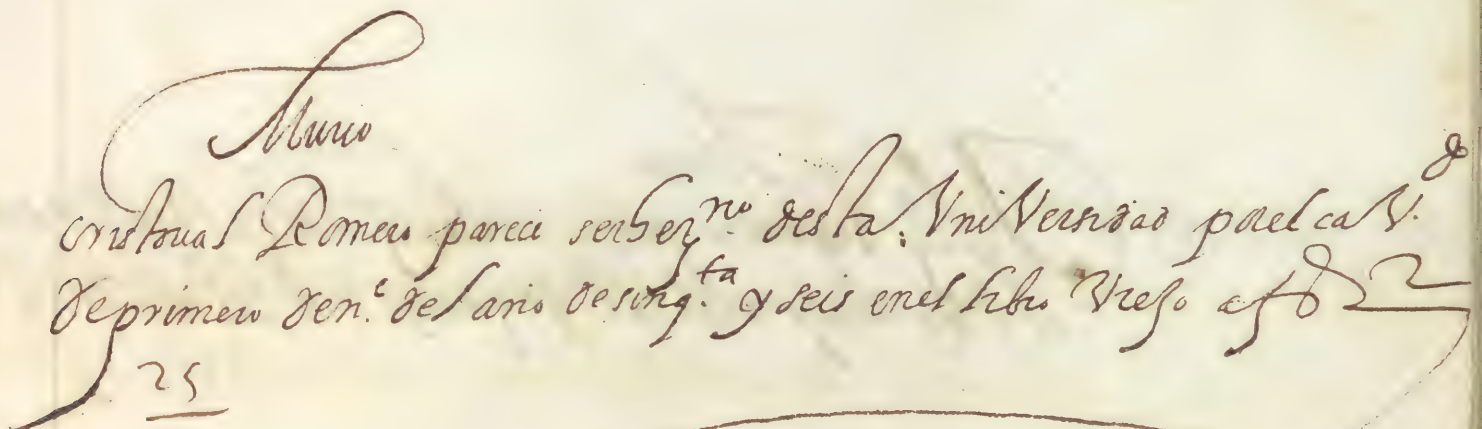 Murio
cristoual Romero parece ser her.no desta Vniversidad por el cav.do
de primero de en.e del año de sinq.ta y seis en el libro Viejo a f
25